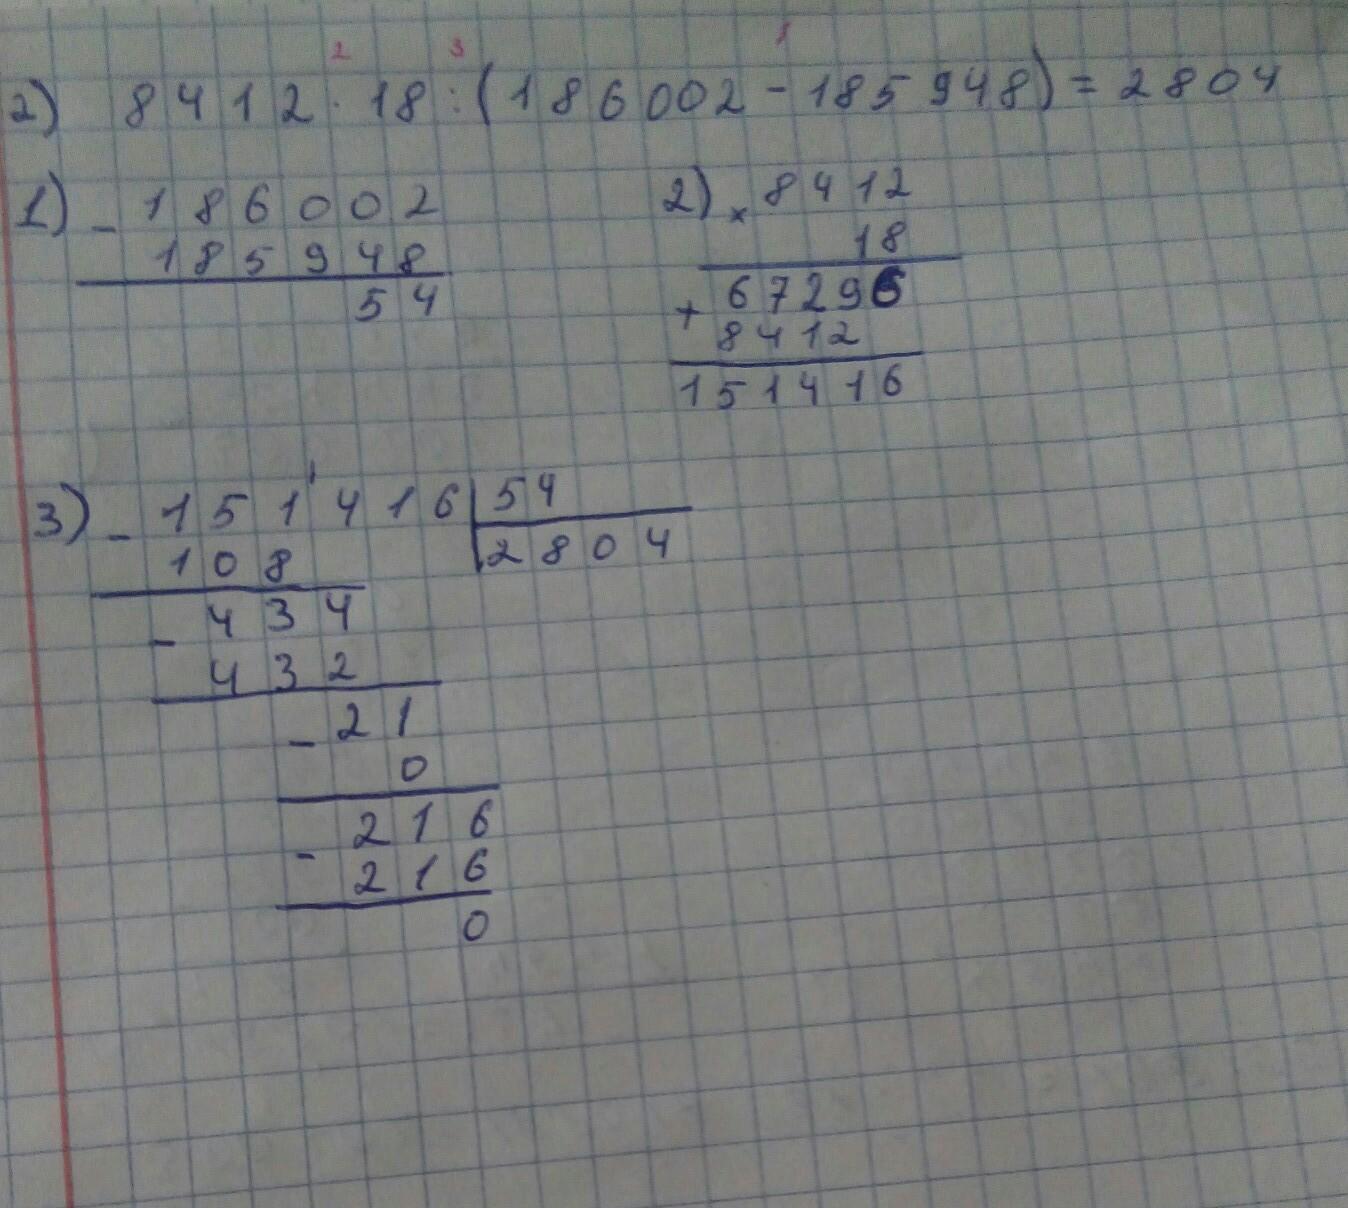 2 3 1
2) 8412 · 18 : (186002 - 185948) = 2804
1) - 186002
185948
54
2) × 8412
18
+ 67296
8412
151416
3) - 151'416 | 54
108 | 2804
- 434
432
- 21
0
- 216
216
0